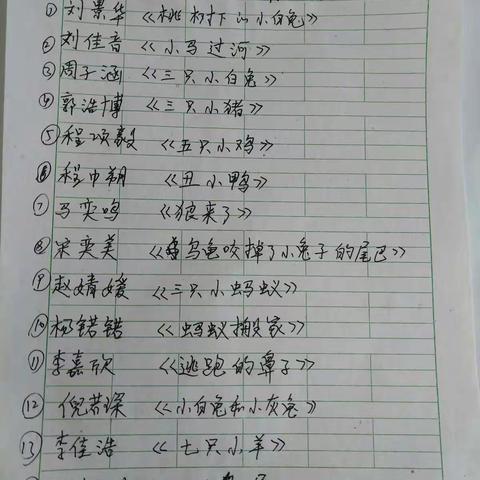 ①刘景华 《桃树下的小白兔》
②刘佳音 《小马过河》
③周子涵 《三只小白兔》
④郭浩博 《三只小猪》
⑤程颂毅 《五只小鸡》
⑥程中朔 《丑小鸭》
⑦马奕鸣 《狼来了》
⑧宋奕美 《乌龟咬掉了小兔子的尾巴》
⑨赵婧媛 《三只小蚂蚁》
⑩杨锘锴 《蚂蚁搬家》
⑪李嘉欣 《逃跑的覃子》
⑫倪若琛 《小白兔和小灰兔》
⑬李佳浩 《七只小羊》